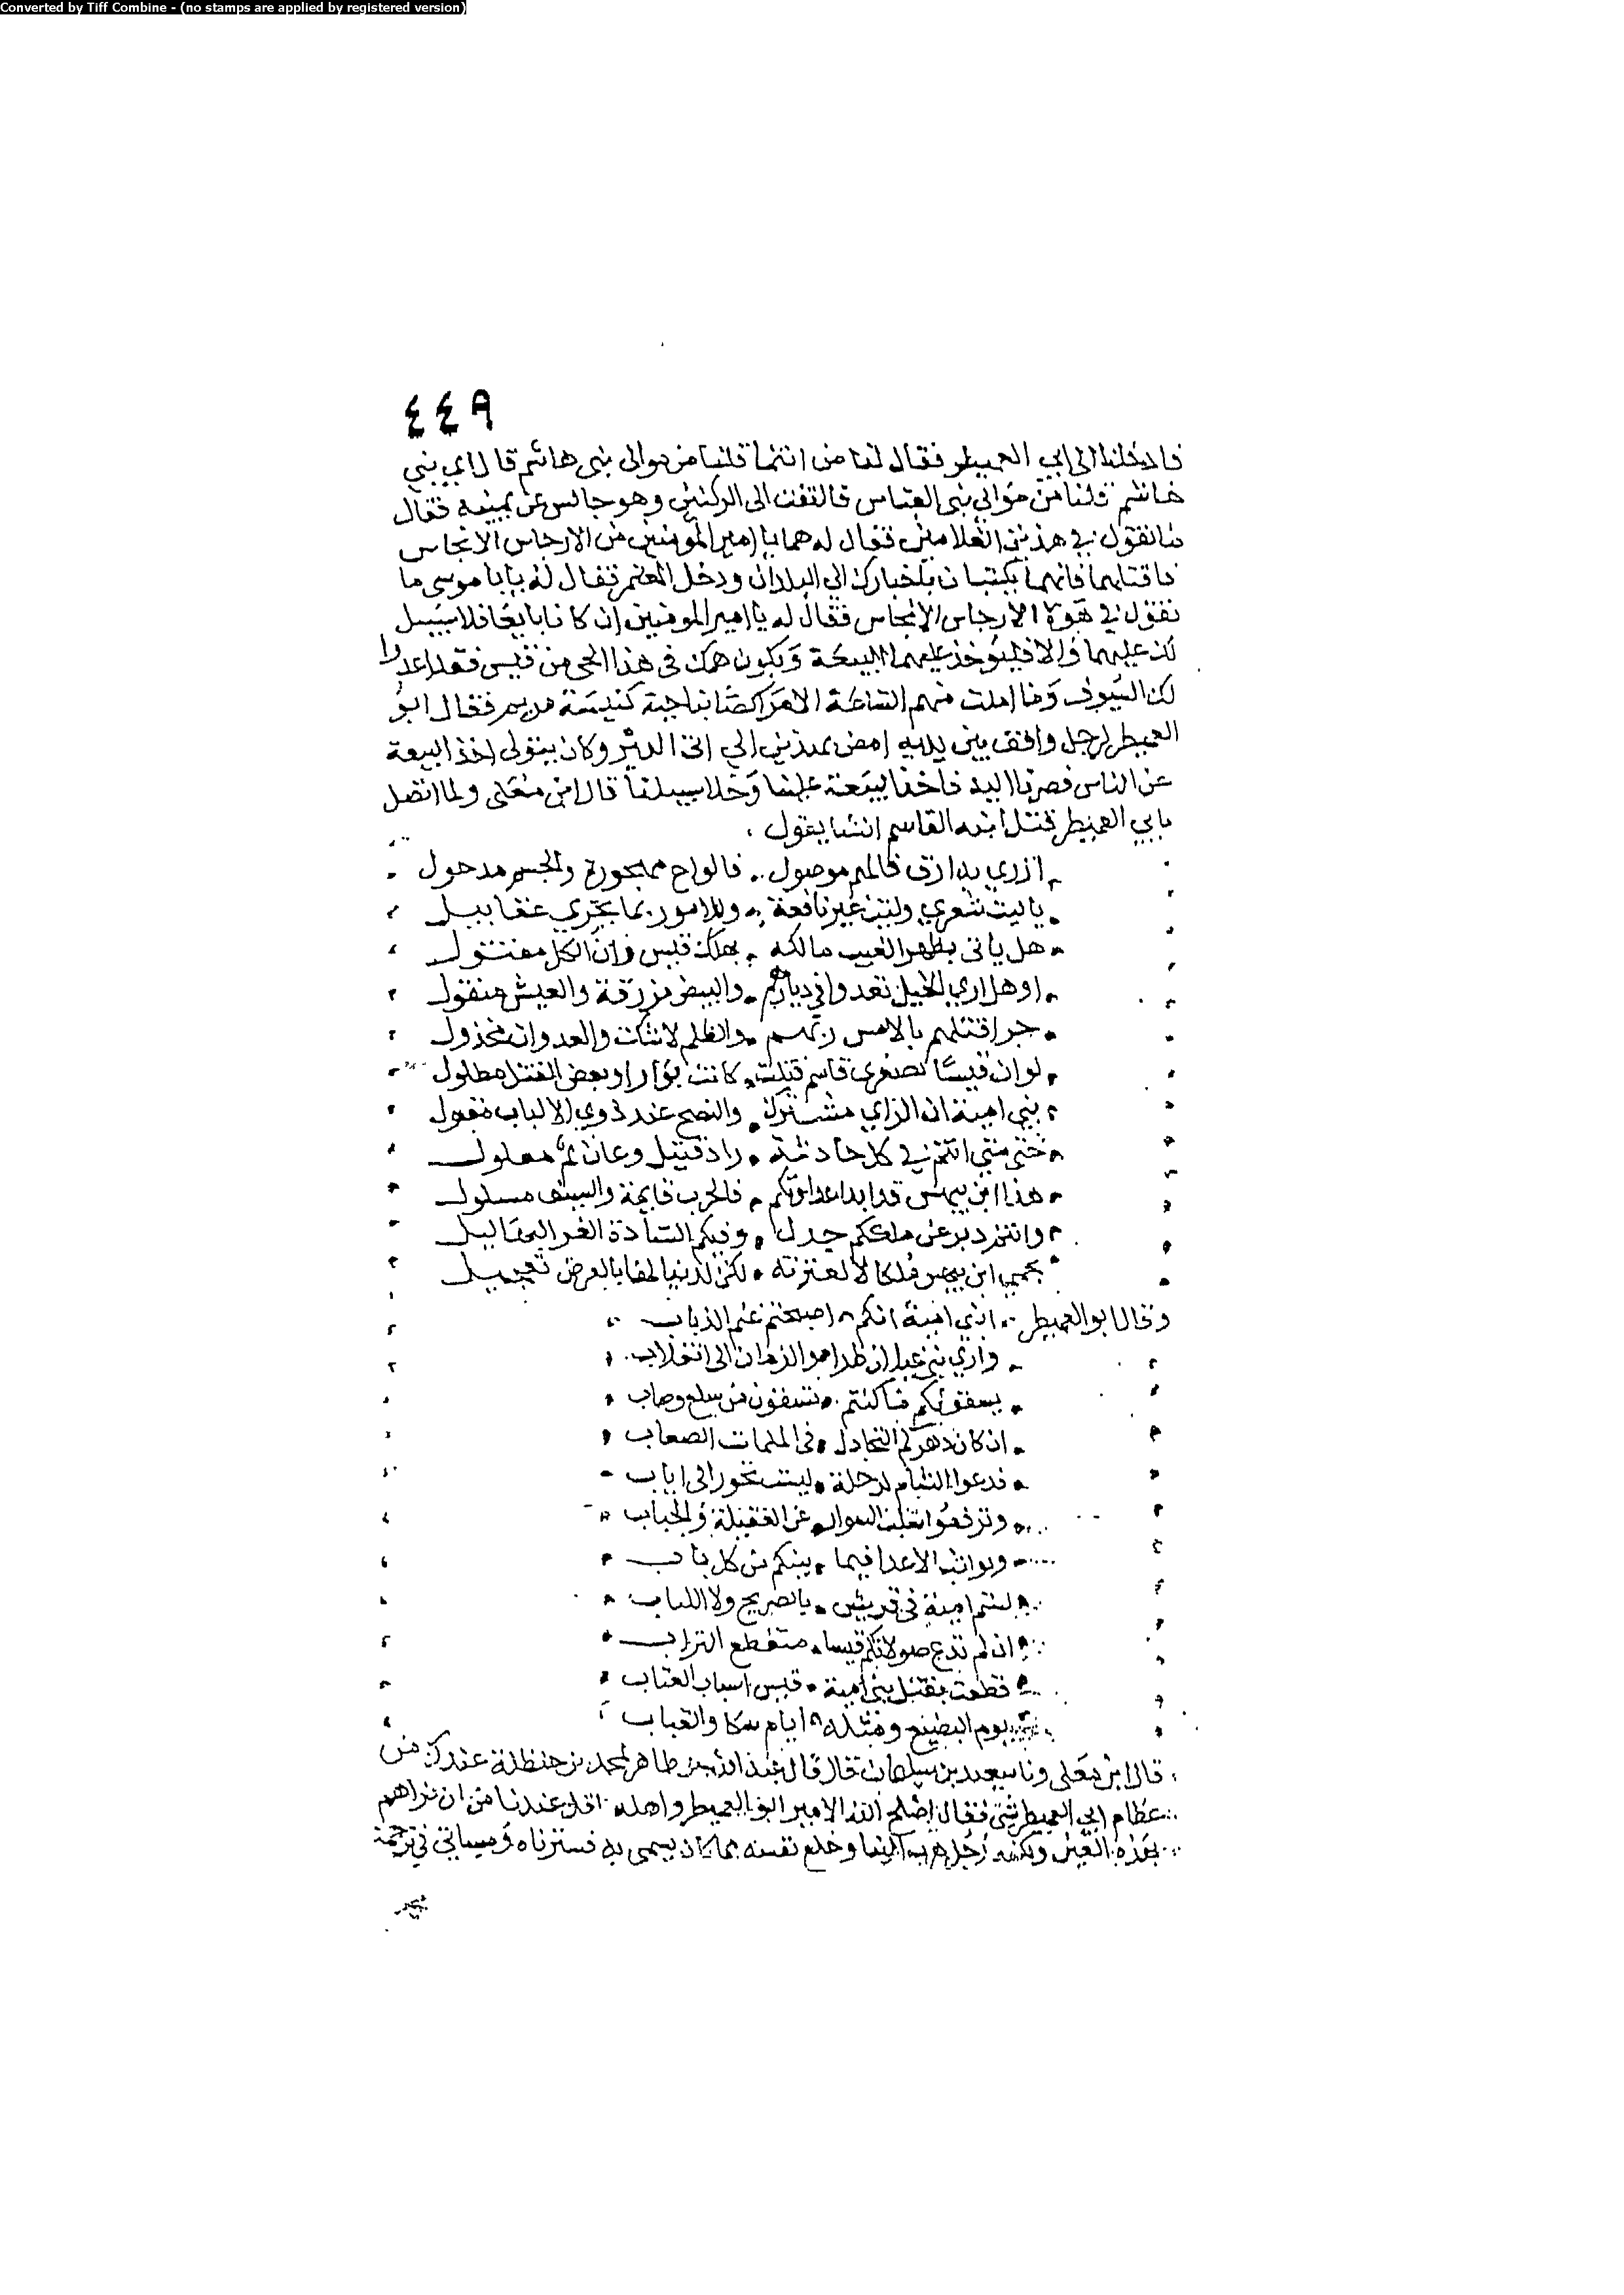 Converted by Tiff Combine - (no stamps are applied by registered version)
٤٤٩
فادخلنا الى ابي العميطر فقال لنا من انتما قلنا من موالى بنى هاشم قال اي بني
هاشم قلنا من موالي بنى العباس فالتفت الى الركنين وهو جالس عن يمينه فقال
ما تقول في هذين الغلامين فقال له هما يا امير المومنين من الارجاس الانجاس
فاقتلهما فانهما يكتبان باخبارك الى البلدان ودخل المعتمر فقال له يا با موسى ما
تقول في هولا الارجاس الانجاس فقال له يا امير المومنين ان كانا بايعا فلا سبيل
لك عليهما والا فليوخذ عليهما البيعة ويكون همك فى هذا الحي من قيس فقد اعدوا
لك السيوف وما املت منهم الساعة الا مراكضا بناحية كنيسة مريم فقال ابو
العميطر لرجل واقف بين يديه امض بهذين الي ... وكان يتولى اخذ البيعة
عن الناس فصرنا اليه فاخذ البيعة علينا وخلا سبيلنا قال ابن معلى ولما اتصل
بابي العميطر قتل ابنه القاسم انشا يقول
ازري بدا ارق فالهم موصول فالواح مهجورة والجسم مدحول
يا ليت شعري وليت غير نافعة وللامور بما يجري عقابيل
هل ياتى بظهر الغيب مالكه بهلك قيس وان الكل مقتول
او هل اري الخيل تعدوا في ديارهم والبيض مزرقة والعيش منقول
جرا قتلهم بالامس ربهم والظلم لا شك والعدوان مخذول
لو ان قيسا تصغرى قاسم قتلت كانت بوارا وبعض القتل مطلول
بني امية ان الراي مشترك والنصح عند ذوي الالباب مقبول
حتى متى انتم في كل حادثة راد قتيل وعان ثم مغلول
هذا ابن بيهس قد ابدا عداوتكم فالحرب قايمة والسيف مسلول
وانتم دبر عن ملككم جدل وفيكم السادة الغر البهاليل
يحمي ابن بيهس ملكا لا لعترته لكن الدنيا لها بالعرض تعجيل
وقال ابو العميطر ابني امية انكم اصبحتم غنم الذياب
واري بني عيلان طرا هو الزمان الى انقلاب
يسقونكم ما كنتم تسقون من سلع وصاب
ان كان دهركم التجادل فى الملمات الصعاب
فدعوا الشام لرحلة ليست تحور الى اياب
وترفعوا ... عن العقيلة والحباب
... الاعدا فيما بينكم من كل باب
لستم امية فى قريش بالصريح ولا اللباب
ان لم تدع صولاتكم قيسا منقطع التراب
قطعت بقتل بني امية قيس اسباب العتاب
يوم البطيح ومثله ايام ... والقباب
قال ابن معلى ونا سعيد بن سليمان قال قال عبد الله بن طاهر لمحمد بن حنظلة عندك من
عظام ابي العميطر شي فقال اصلح الله الامير ابو العميطر واهله اقل عندنا من ان نراهم
بهذه العين ولكنه رجل هرب الينا وخلع نفسه مما كان يسمى به فسترناه وسياتي في ترجمة